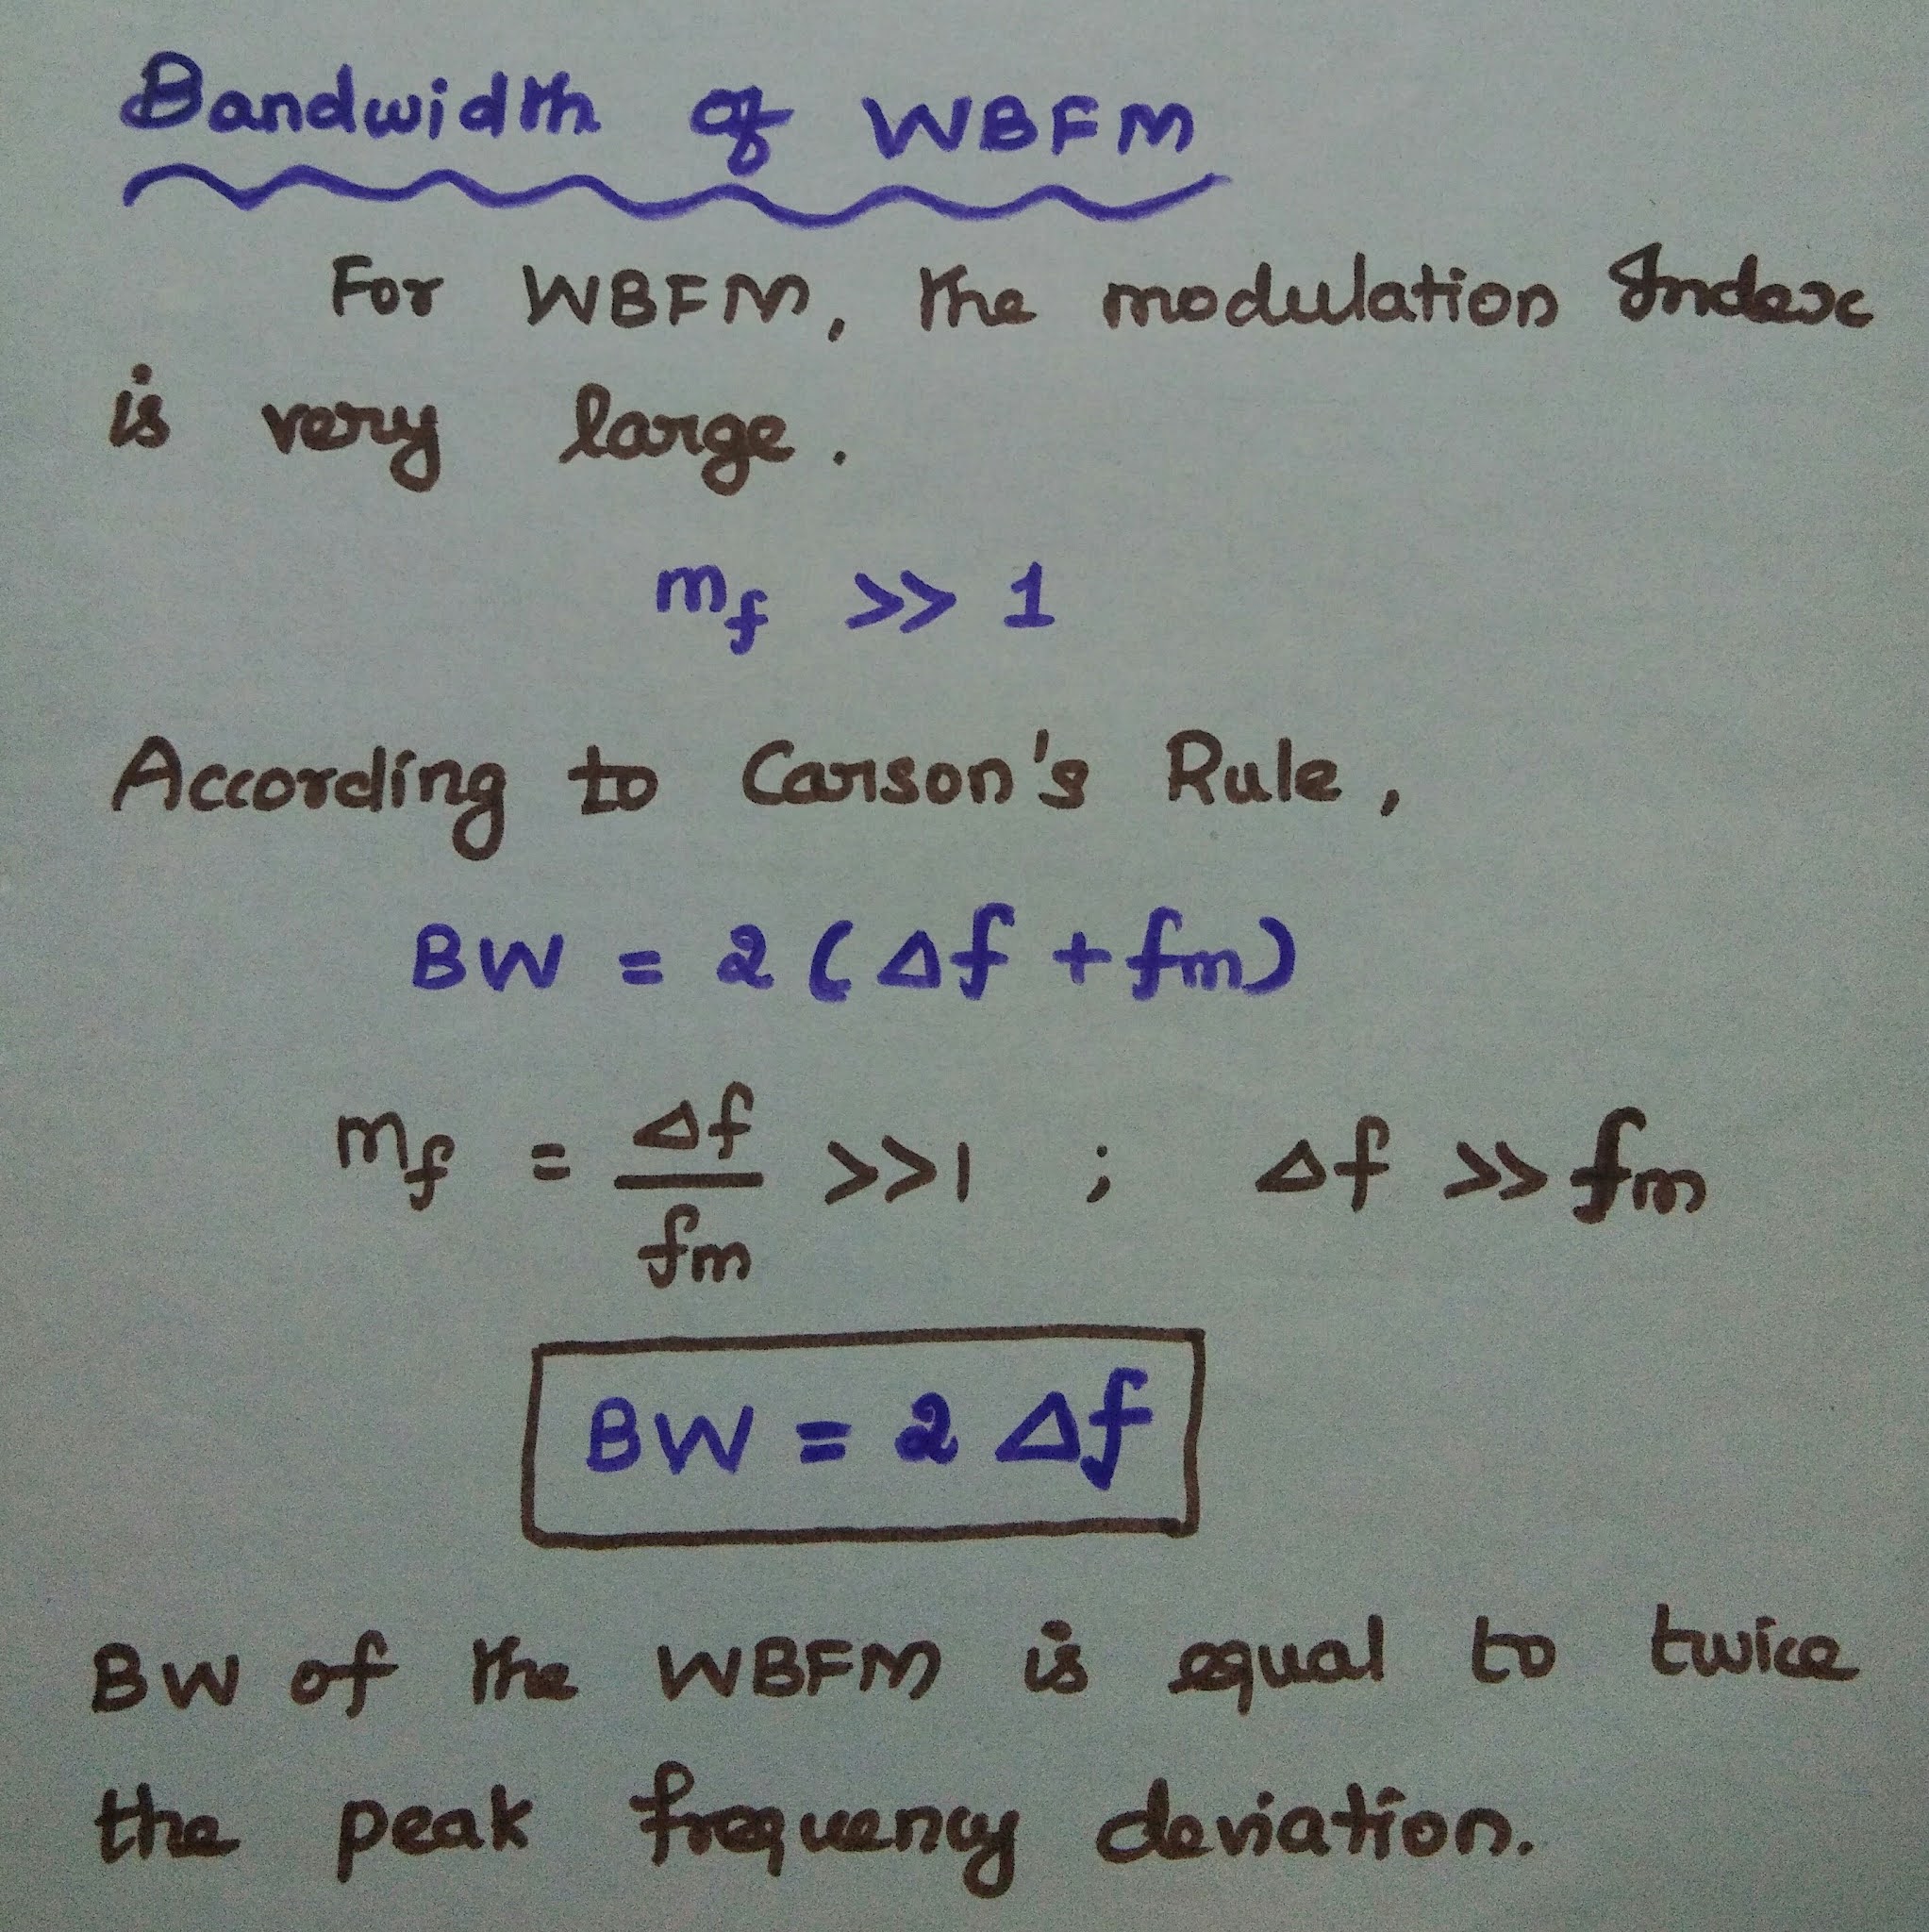 Bandwidth of WBFM
For WBFM, the modulation Index
is very large.
mf >> 1
According to Carson's Rule,
BW = 2 (Δf + fm)
mf = Δf/fm >>1 ; Δf >> fm
BW = 2 Δf
BW of the WBFM is equal to twice
the peak frequency deviation.